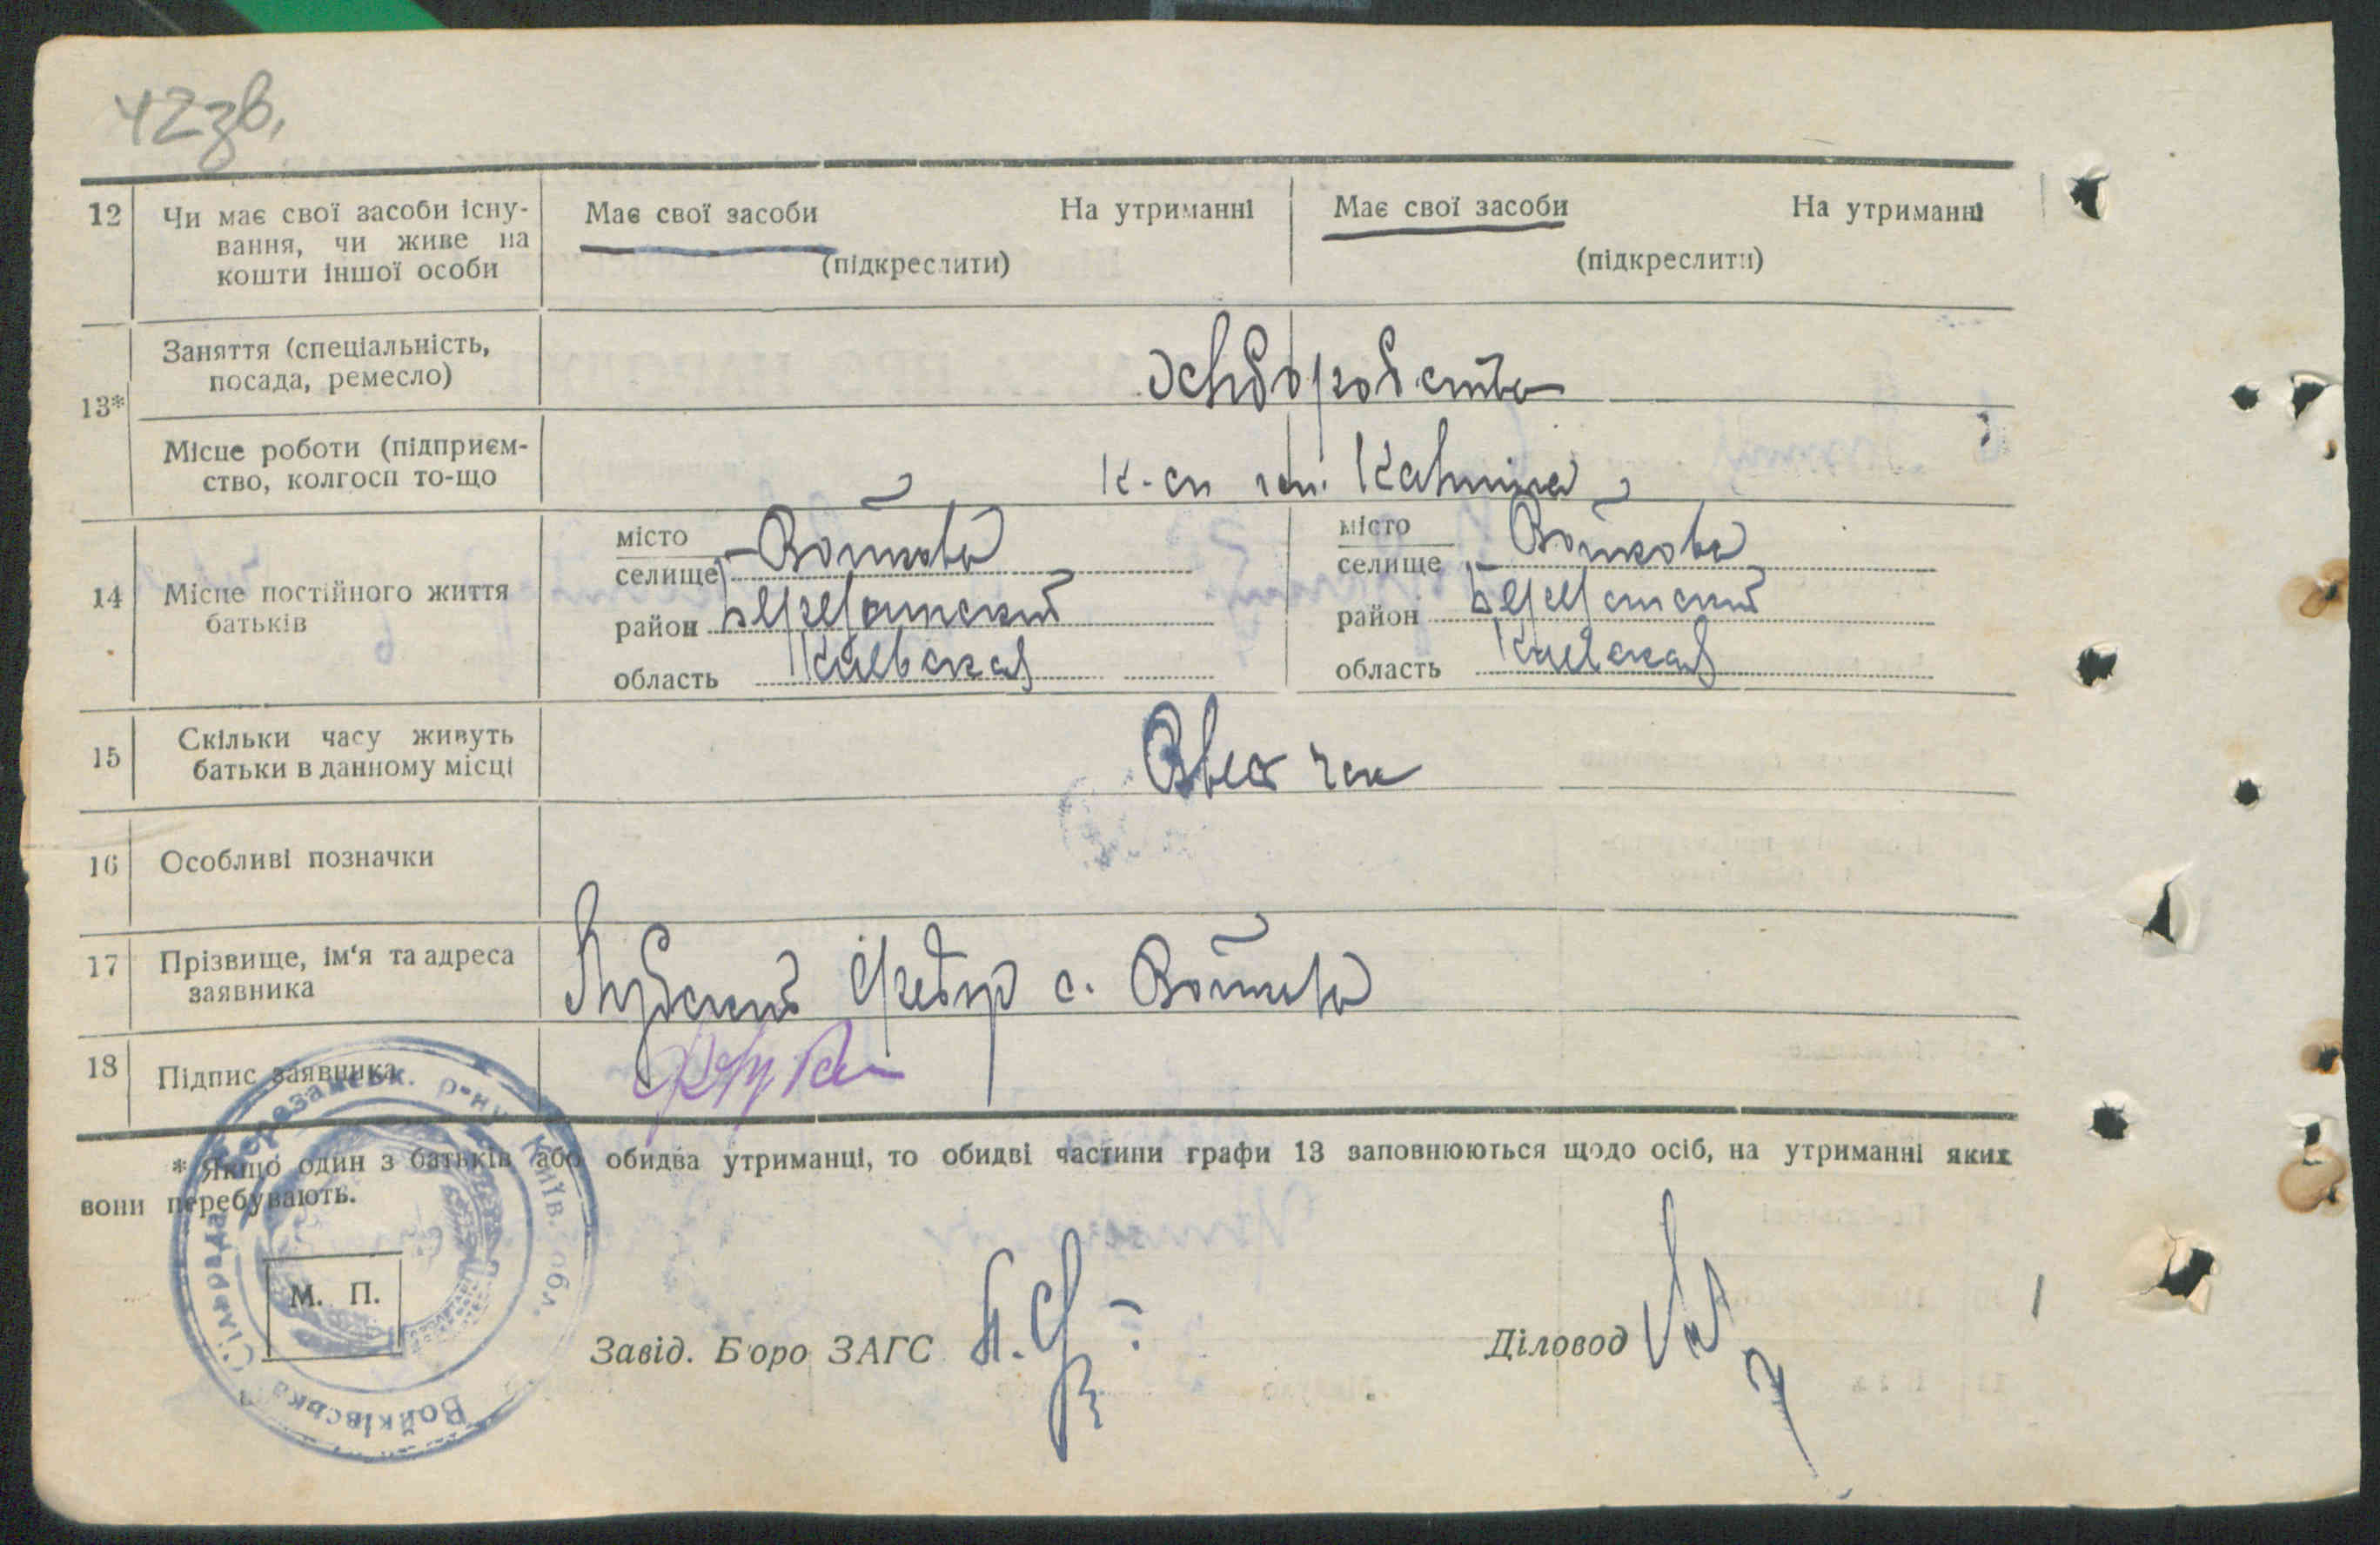 42зв.
12 Чи має свої засоби існу-
вання, чи живе на
кошти іншої особи
Має свої засоби На утриманні
(підкреслити)
Має свої засоби На утриманні
(підкреслити)
13*
Заняття (спеціальність,
посада, ремесло)
Місце роботи (підприєм-
ство, колгосп то-що
к-сп им. Калинина
14 Місце постійного життя
батьків
місто
селище Войкова
район Березанский
область Киевская
місто
селище Войкова
район Березанский
область Киевская
15 Скільки часу живуть
батьки в данному місці
16 Особливі позначки
17 Прізвище, ім'я та адреса
заявника
Федор с. Войкова
18 Підпис заявника
* Якщо один з батьків або обидва утриманці, то обидві частини графи 13 заповнюються щодо осіб, на утриманні яких
вони перебувають.
Войківська Сільрада Березанськ. р-ну Київ. обл.
М. П.
Завід. Бюро ЗАГС
Діловод